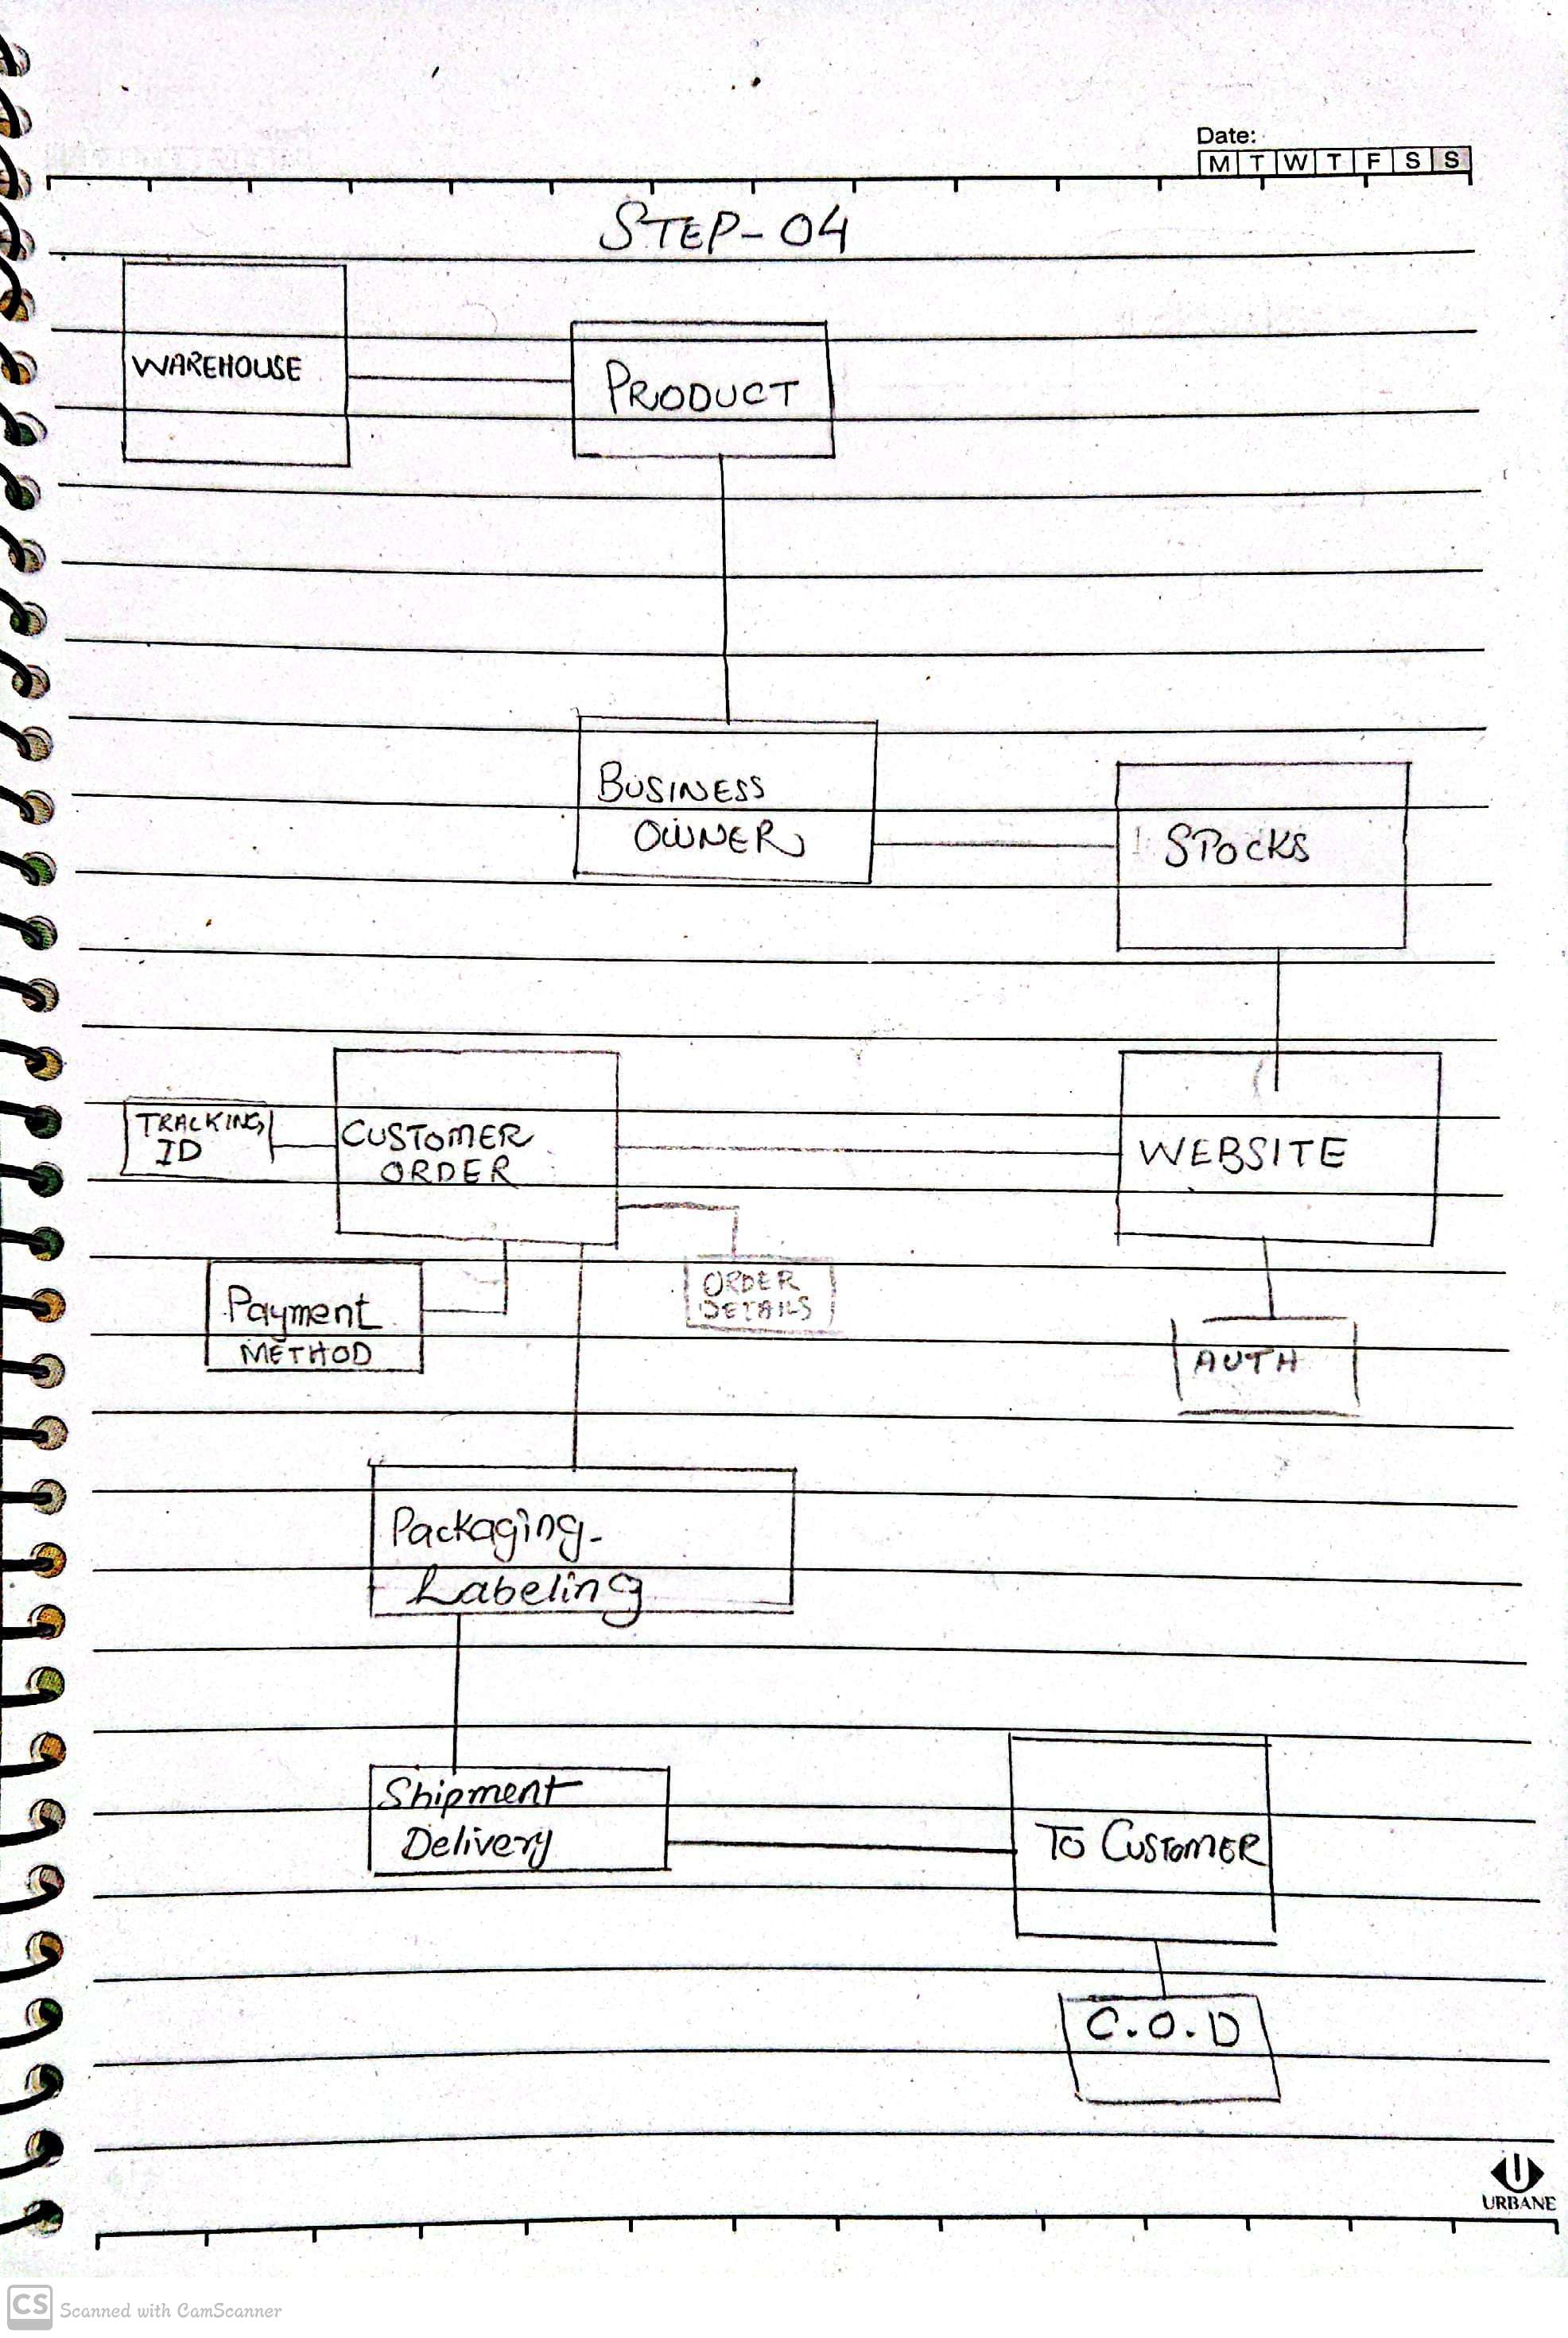 Date:
M T W T F S S
STEP-04
WAREHOUSE
PRODUCT
BUSINESS
OWNER
STOCKS
TRACKING
ID
CUSTOMER
ORDER
WEBSITE
ORDER
DETAILS
Payment
METHOD
AUTH
Packaging-
Labeling
Shipment
Delivery
TO CUSTOMER
C.O.D
U
URBANE
CS Scanned with CamScanner